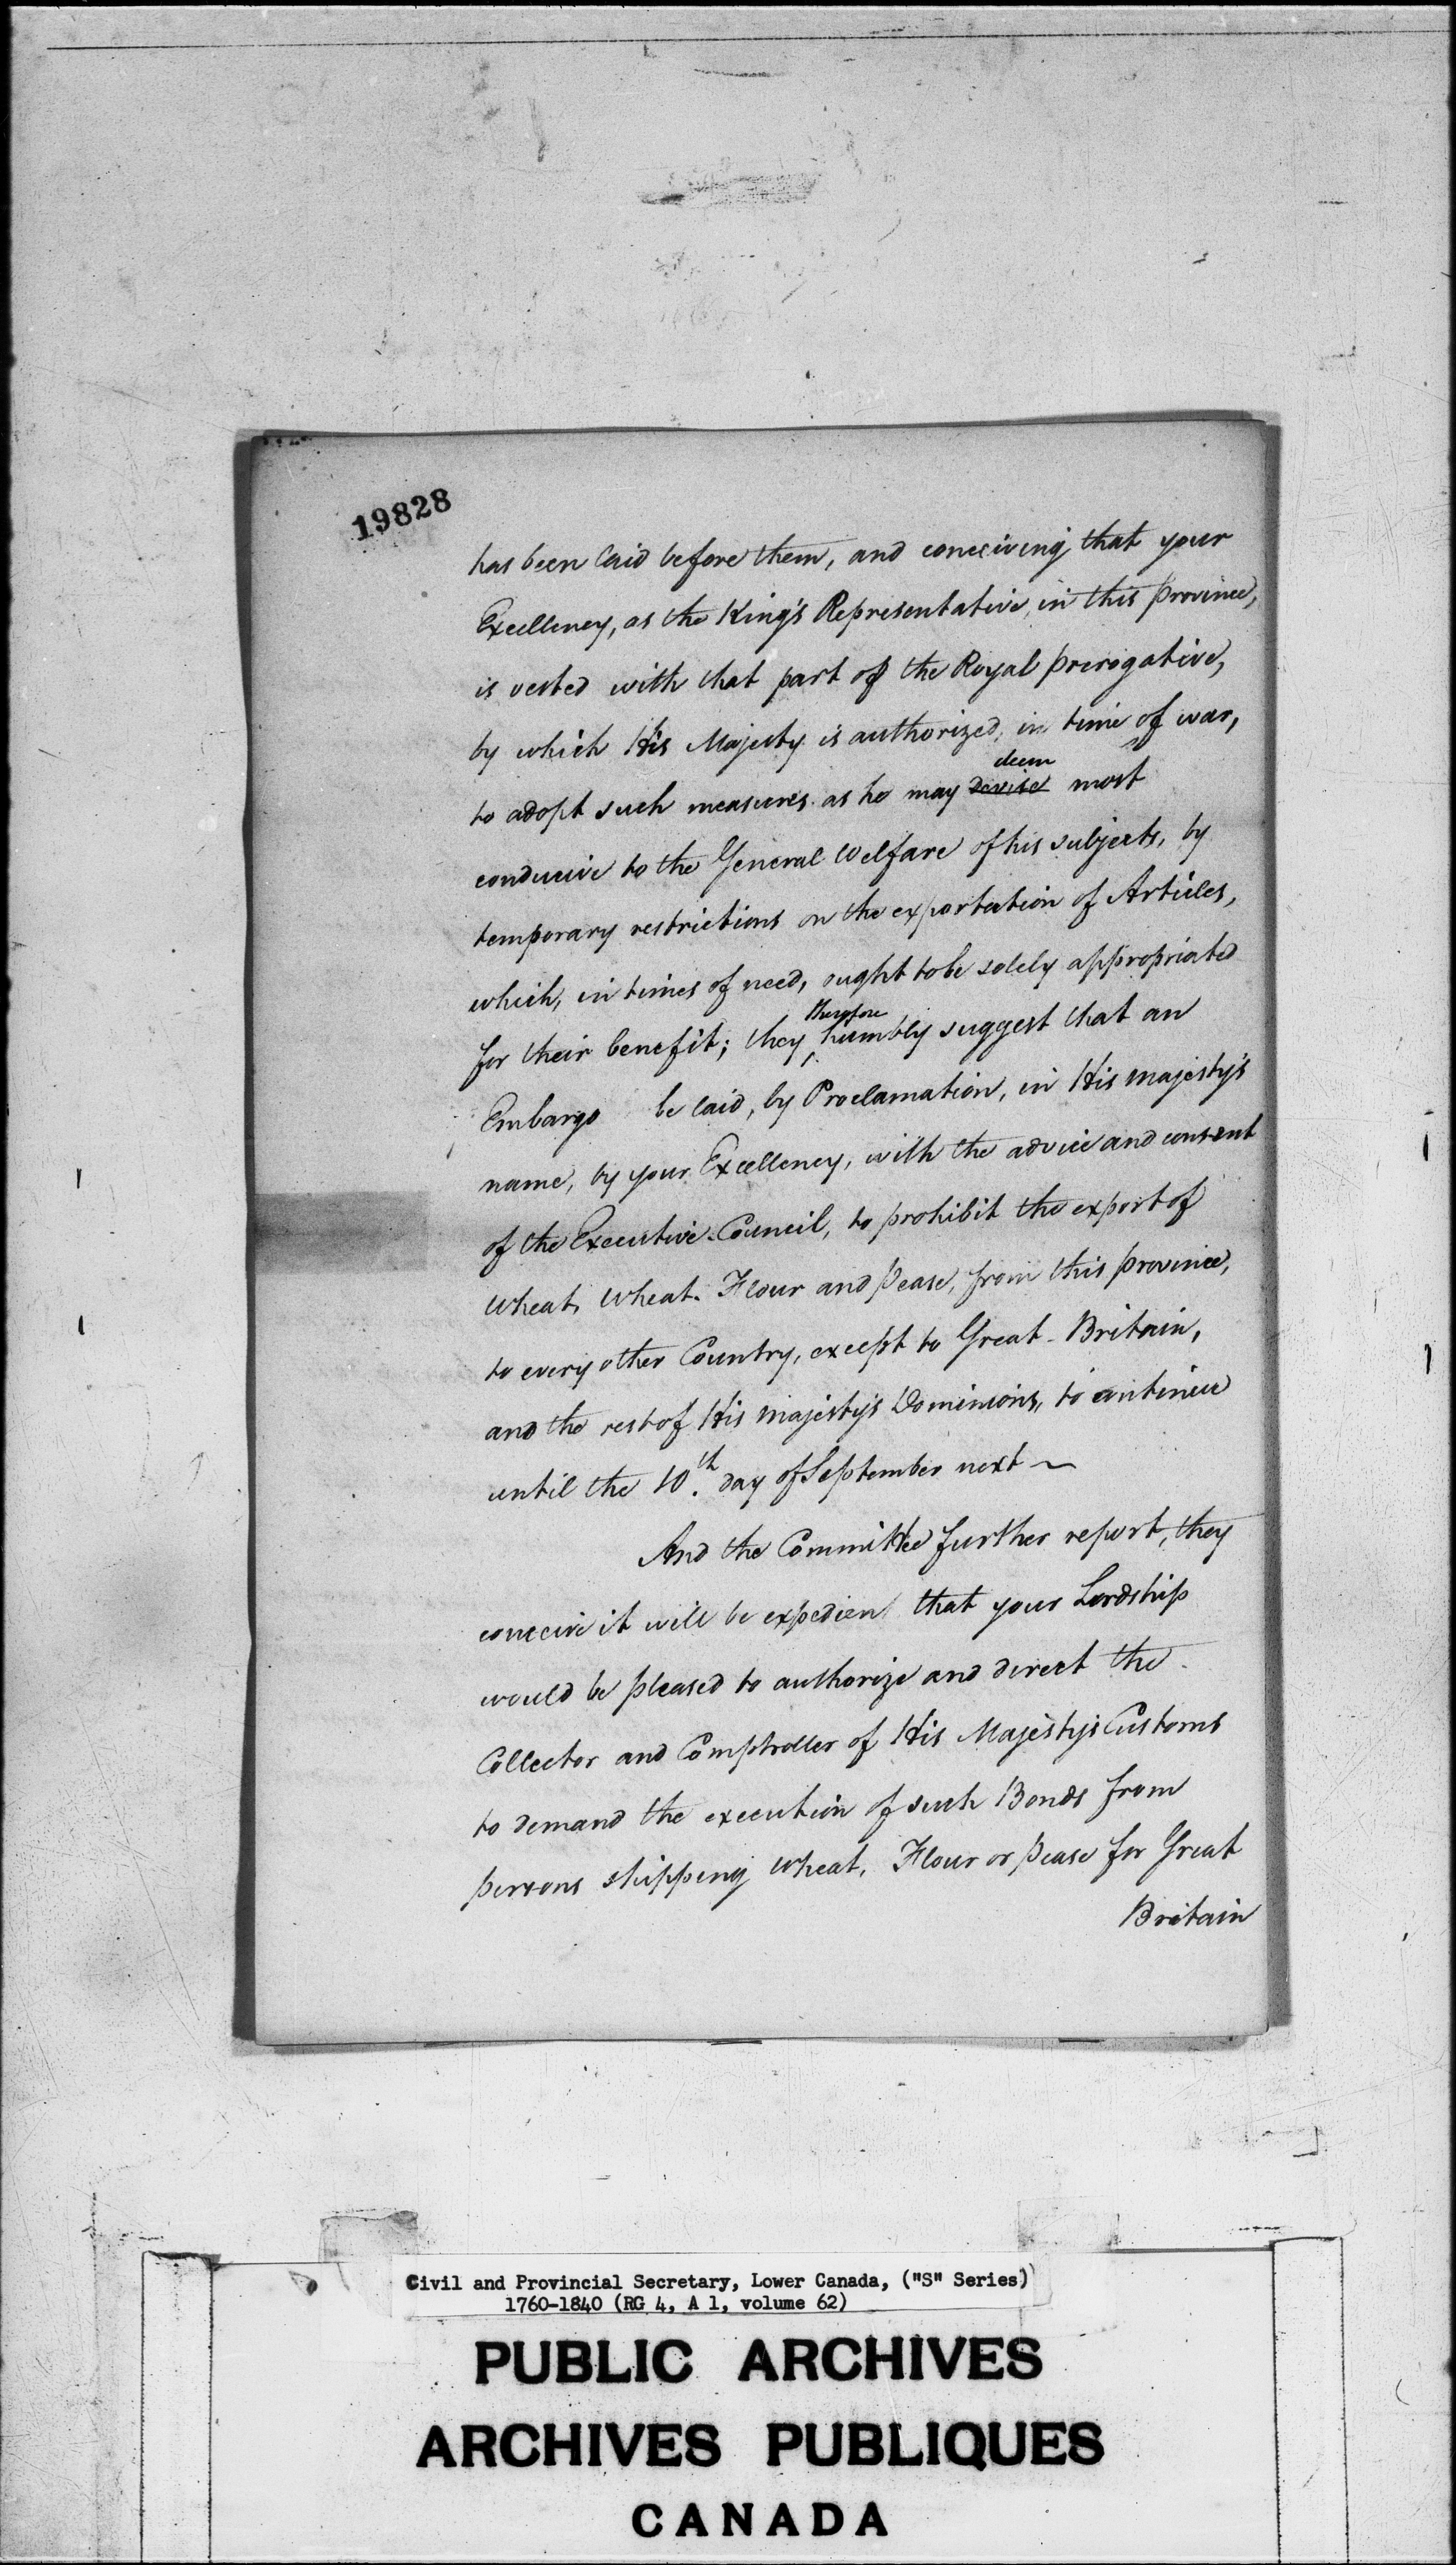 19828
has been laid before them, and conceiving that your
Excellency, as the King's Representative, in this province,
is vested with that part of the Royal prerogative,
by which His Majesty is authorized, in time of war,
deem
to adopt such measures as he may devise most
conducive to the General Welfare of his subjects, by
temporary restrictions on the exportation of Articles,
which, in times of need, ought to be solely appropriated
therefore
for their benefit; they humbly suggest that an
Embargo be laid, by Proclamation, in His majesty's
name, by your Excellency, with the advice and consent
of the Executive Council, to prohibit the export of
Wheat, Wheat Flour and pease, from this province,
to every other Country, except to Great-Britain,
and the rest of His majesty's Dominions, to continue
until the 10th. day of September next ~
And the Committee further report, they
conceive it will be expedient that your Lordship
would be pleased to authorize and direct the
Collector and Comptroller of His Majesty's Customs
to demand the execution of such Bonds from
persons shipping wheat, Flour or pease for Great
Britain
Civil and Provincial Secretary, Lower Canada, ("S" Series)
1760-1840 (RG 4, A 1, volume 62)
PUBLIC ARCHIVES
ARCHIVES PUBLIQUES
CANADA